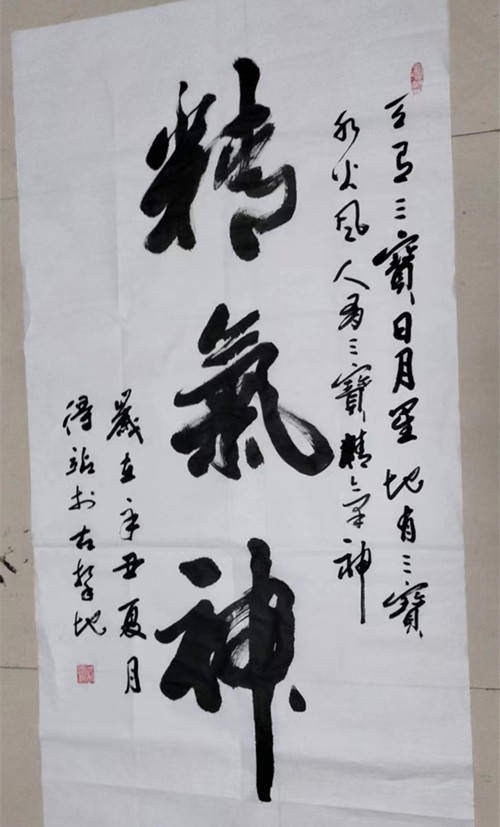 天有三寶日月星地有三寶
水火风人有三寶精氣神
精氣神
歲在辛丑夏月
於古地